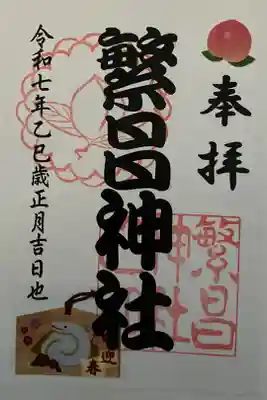 奉拝
繁昌神社
繁昌
神社
令和七年乙巳歳正月吉日也
迎春